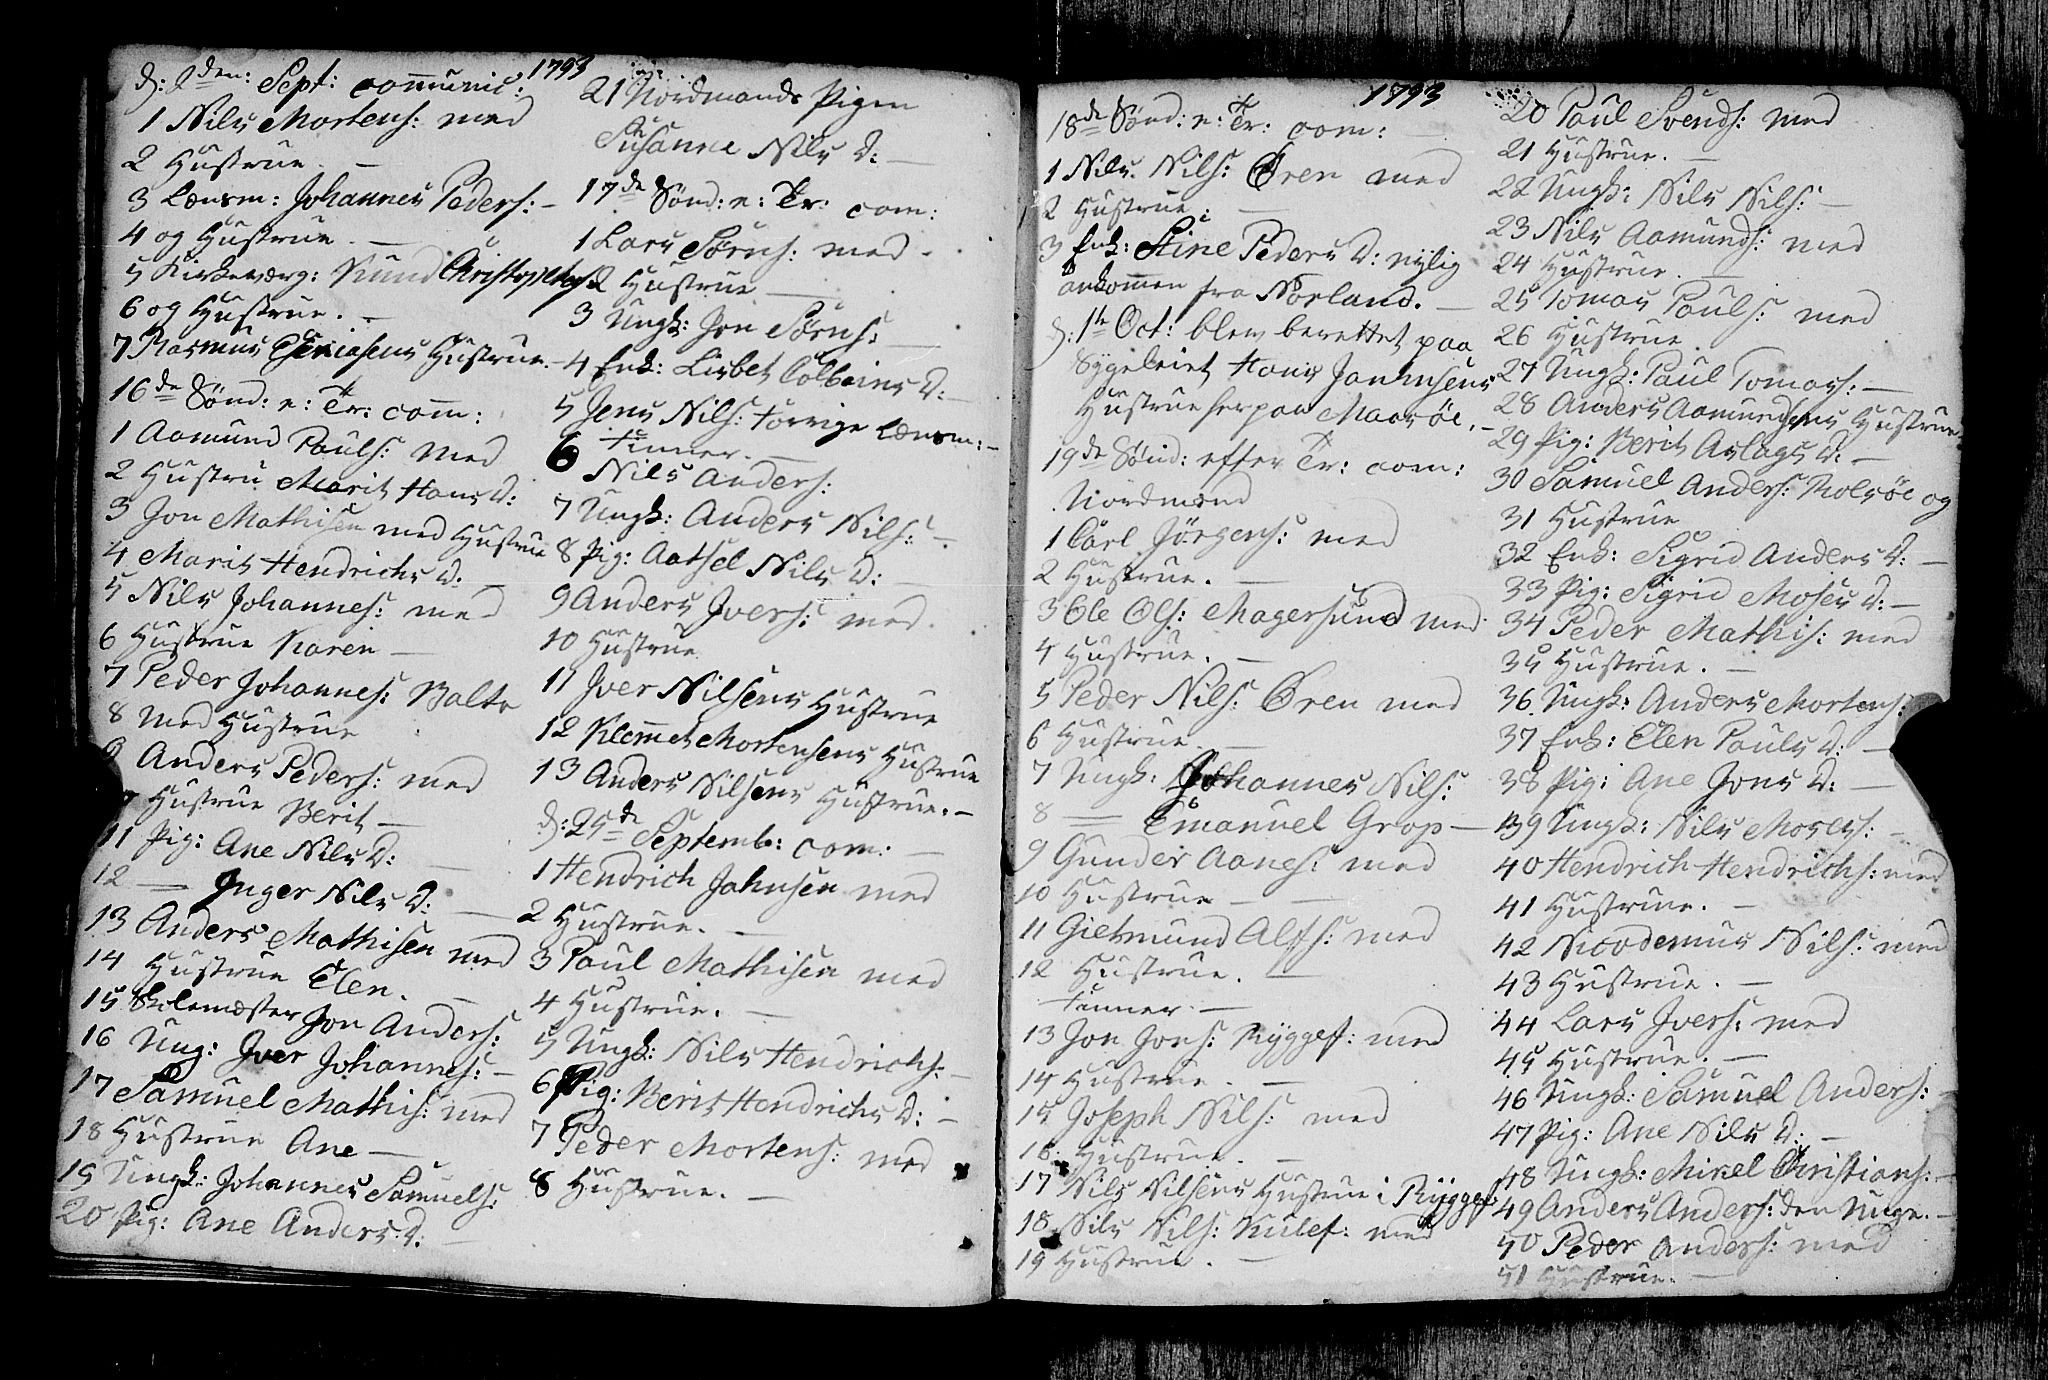 1793
d: 2den: Sept: communic:
1 Nils Mortens: med
2 Hustrue. —
3 Lensm: Johannes Peders: —
4 og Hustrue. —
5 Kirkeværg: Knud Christophers:
6 og Hustrue. —
7 Rasmus Hustrue. —
16de Sønd: e: Tr: com:
1 Aamund Pouls: med
2 Hustru Marit Hans D:
3 Jon Mathisen med Hustrue
4 Marit Hendrichs D. —
5 Nils Johannes: med
6 Hustrue Karen —
7 Peder Johannes: Balto
8 med Hustrue
9 Anders Peders: med
Hustrue Berit —
11 Pig: Ane Nils D: —
12 — Inger Nils D: —
13 Anders Mathisen med
14 Hustrue Elen. —
15 Skolemester Jon Anders:
16 Ung: Iver Johannes: —
17 Samuel Mathis: med
18 Hustrue Ane —
19 Ungk: Johannes Samuels:
20 Pig: Ane Anders D: —
21 Nordmands Pigen
Susanne Nils D: —
17de Sønd: e: Tr: com:
1 Lars Sørns: med
2 Hustrue —
3 Ungk: Jon Sørns: —
4 Enk: Lisbet Colbeins D: —
5 Jens Nils: forrige Lensm: —
Finner. —
6 Nils Anders:
7 Ungk: Anders Nils: —
8 Pig: Aatsel Nils D: —
9 Anders Ivers: med
10 Hustrue
11 Iver Nilsens Hustrue
12 Klemmet Mortensens Hustrue
13 Anders Nilsens Hustrue. —
d: 25de Septemb: com: —
1 Hendrich Johnsen med
2 Hustrue. —
3 Poul Mathisen med
4 Hustrue. —
5 Ungk: Nils Hendrichs: —
6 Pig: Berit Hendrichs D: —
7 Peder Mortens: med
8 Hustrue. —
1793
18de Sønd: e: Tr: com: —
1 Nils Nils: Øren med
2 Hustrue. —
3 Enk: Stine Peders D: nylig
ankommen fra Norland. —
d: 1te Oct: blev berettet paa
Sygeleiet Hans Johnsens
Hustrue her paa Maasøe. —
19de Sønd: efter Tr: com:
Nordmænd
1 Carl Jörgens: med
2 Hustrue. —
3 Ole Ols: Magersund med
4 Hustrue. —
5 Peder Nils: Øren med
6 Hustrue. —
7 Ungk: Johannes Nils:
8 — Emanuel Grop —
9 Gunder Aanes: med
10 Hustrue —
11 Gietmund Alfs: med
12 Hustrue. —
Finner —
13 Jon Jons: Ryggef: med
14 Hustrue. —
15 Joseph Nils: med
16 Hustrue. —
17 Nils Nilsens Hustrue i Ryggef:
18 Nils Nils: Kulef: med
19 Hustrue. —
20 Paul Svends: med
21 Hustrue. —
22 Ungk: Nils Nils: —
23 Nils Aamunds: med
24 Hustrue. —
25 Tomas Pouls: med
26 Hustrue.
27 Ungk: Paul Tomas: —
28 Anders Aamundsens Hustrue —
29 Pig: Berit Aslags D: —
30 Samuel Anders: Rolsøe og
31 Hustrue
32 Enk: Sigrid Anders D: —
33 Pig: Sigrid Moses D: —
34 Peder Mathis: med
35 Hustrue. —
36 Ungk: Anders Mortens:
37 Enk: Elen Pouls D: —
38 Pig: Ane Jons D: —
39 Ungk: Nils Moses: —
40 Hendrich Hendrichs: med
41 Hustrue. —
42 Nicodemus Nils: med
43 Hustrue. —
44 Lars Ivers: med
45 Hustrue. —
46 Ungk: Samuel Anders: —
47 Pig: Ane Nils D: —
48 Ungk: Mikel Christians: —
49 Anders Anders: den Unge. —
50 Peder Anders: med
51 Hustrue. —